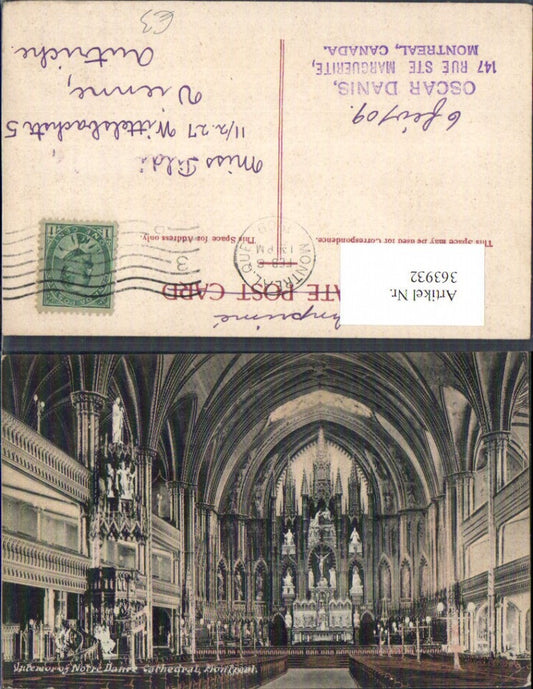 PRIVATE POST CARD
Imprimé
This Space may be used for Correspondence.
This Space for Address only.
MONTREAL, QUE.
FEB 6
PM
Artikel Nr.
363932
OSCAR DANIS,
147 RUE STE MARGUERITE,
MONTREAL, CANADA.
Miss
11/2. 27 Wittelsbachstr 5
Vienne,
Autriche
1
1
Interior of Notre Dame Cathedral, Montreal.